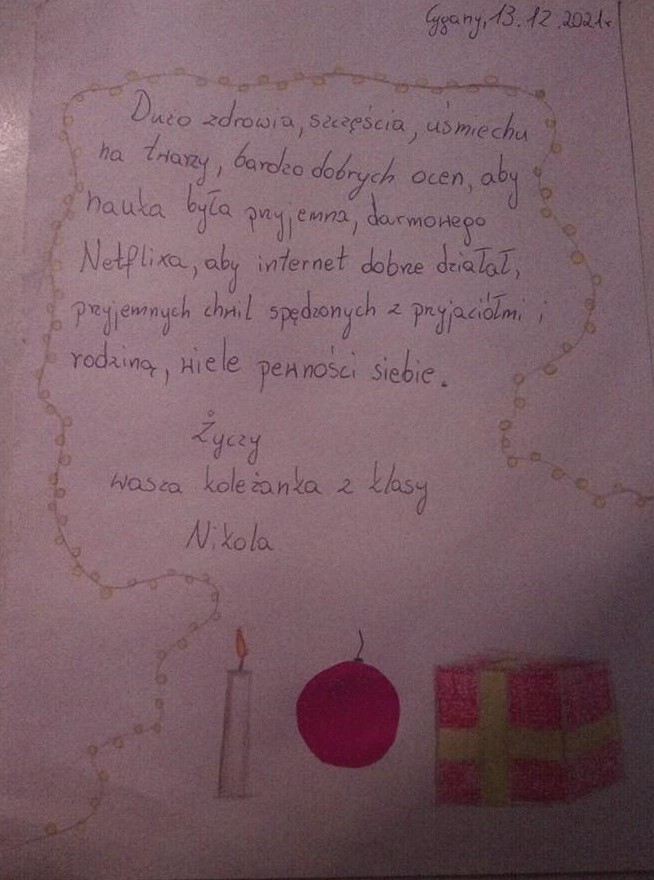 Cygany, 13.12.2021r
Dużo zdrowia, szczęścia, uśmiechu
na twarzy, bardzo dobrych ocen, aby
nauka była przyjemna, darmowego
Netflixa, aby internet dobrze działał,
przyjemnych chwil spędzonych z przyjaciółmi i
rodziną, wiele pewności siebie.
Życzy
wasza koleżanka z klasy
Nikola